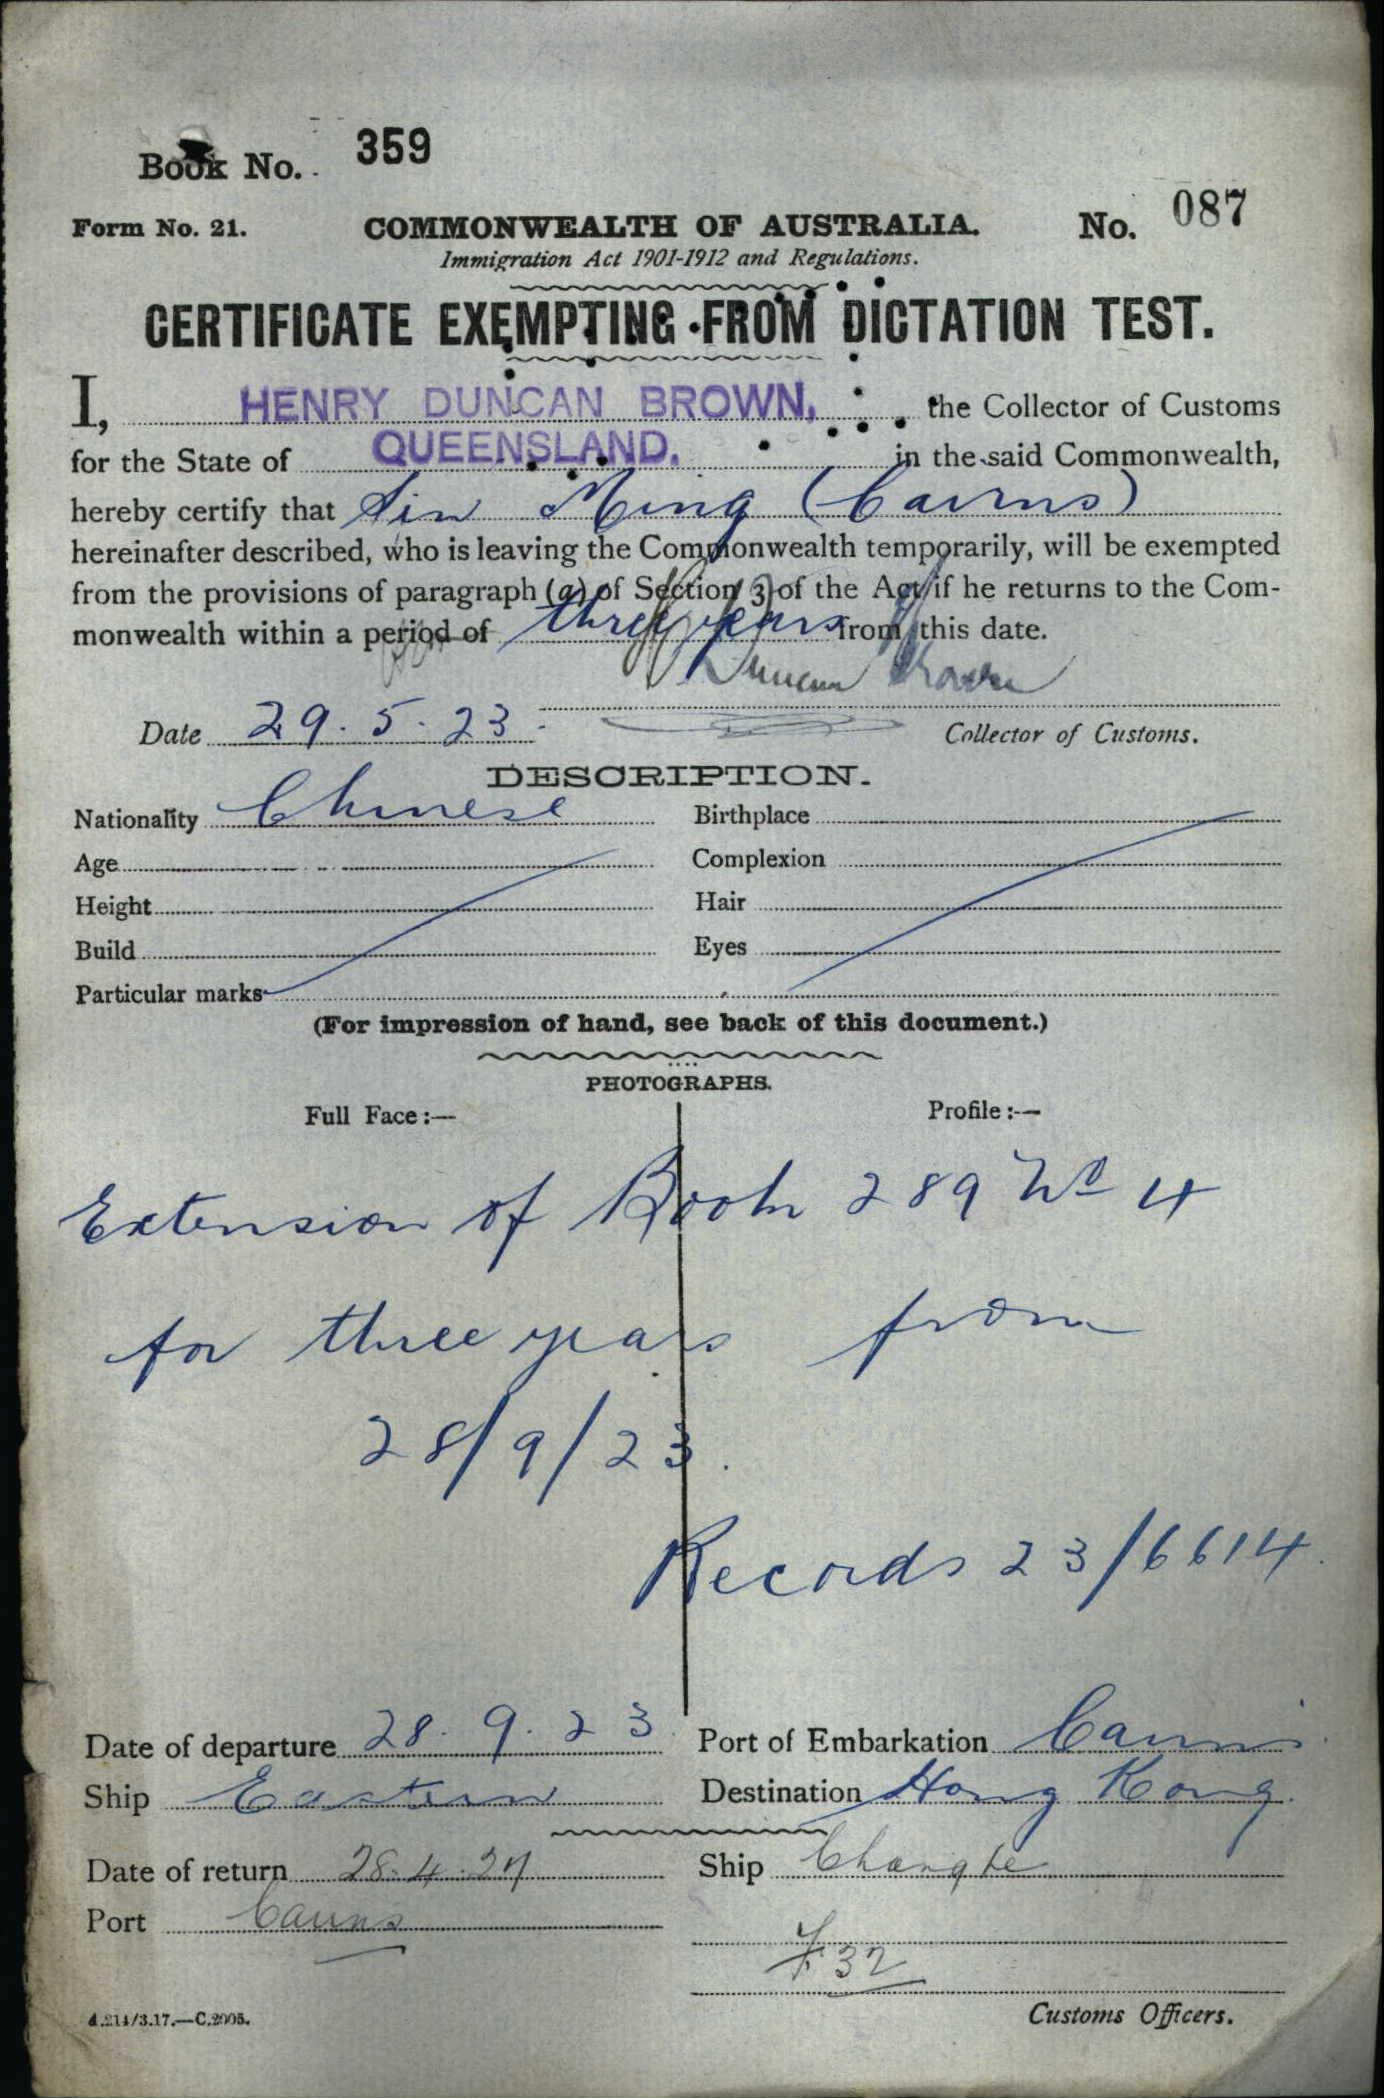 Book No. 359
Form No. 21. COMMONWEALTH OF AUSTRALIA. No. 087
Immigration Act 1901-1912 and Regulations.
CERTIFICATE EXEMPTING FROM DICTATION TEST.
I, HENRY DUNCAN BROWN, the Collector of Customs
for the State of QUEENSLAND. in the said Commonwealth,
hereby certify that Sin Ming (Cairns)
hereinafter described, who is leaving the Commonwealth temporarily, will be exempted
from the provisions of paragraph (a) of Section 3 of the Act if he returns to the Com-
monwealth within a period of three years from this date.
Duncan Brown
Date 29.5.23. Collector of Customs.
DESCRIPTION.
Nationality Chinese Birthplace
Age Complexion
Height Hair
Build Eyes
Particular marks
(For impression of hand, see back of this document.)
PHOTOGRAPHS.
Full Face:— Profile:—
Extension of Book 289 No 4
for three years from
28/9/23.
Records 23/6614.
Date of departure 28.9.23. Port of Embarkation Cairns
Ship Eastern Destination Hong Kong.
Date of return 28.4.27 Ship Changte
Port Cairns
F 32
Customs Officers.
d.214/3.17.—C.2005.